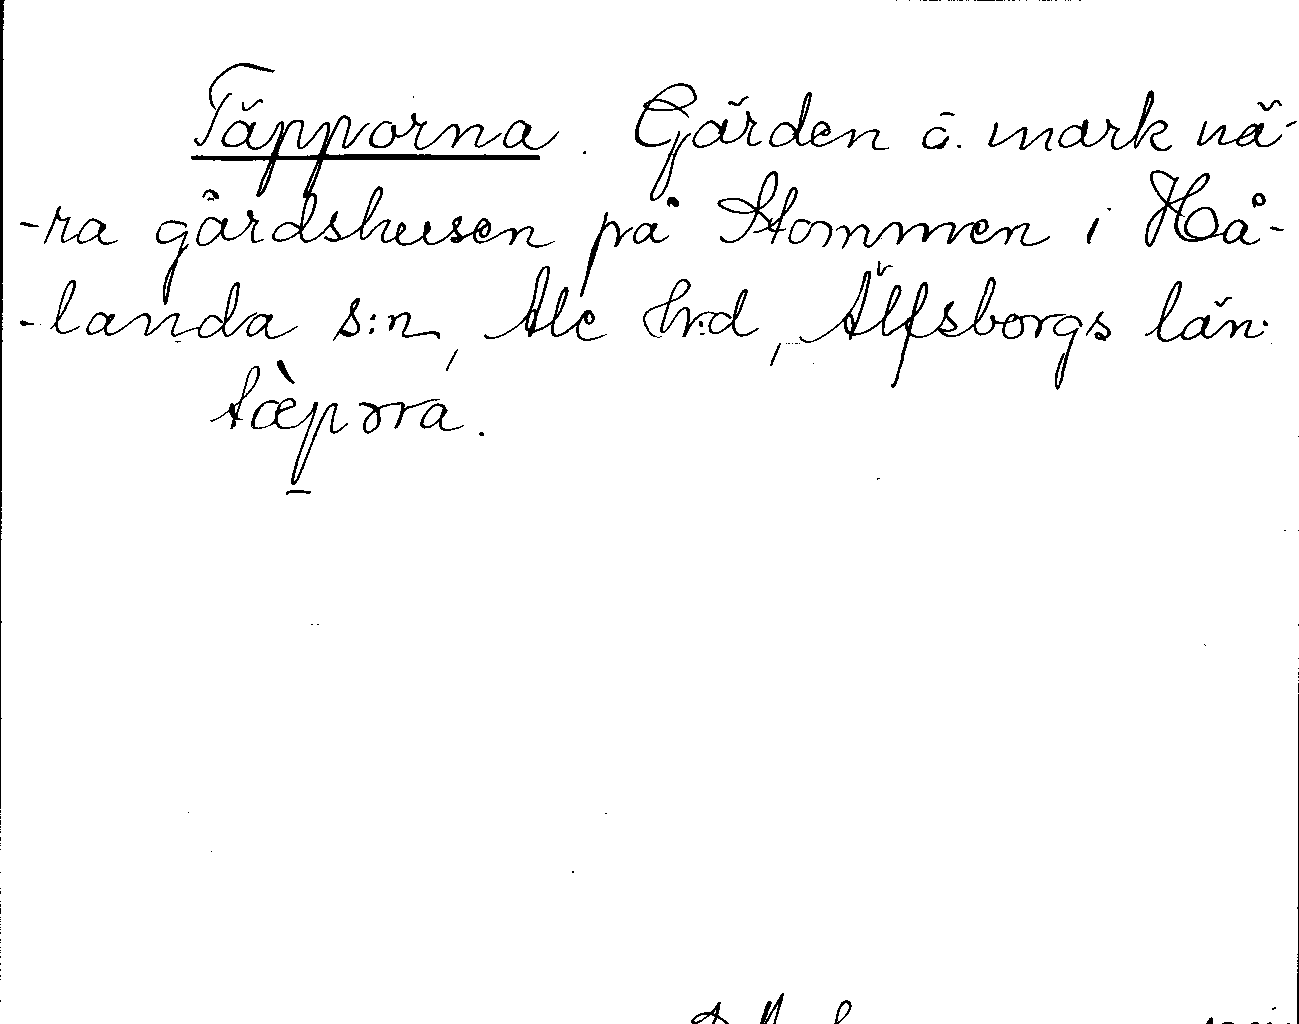 Täpporna. Gärden å. mark nä-
-ra gårdshusen på Stommen i Hå-
-landa s:n, Ale hr:d, Älfsborgs län.
tæ̀pɔrra.